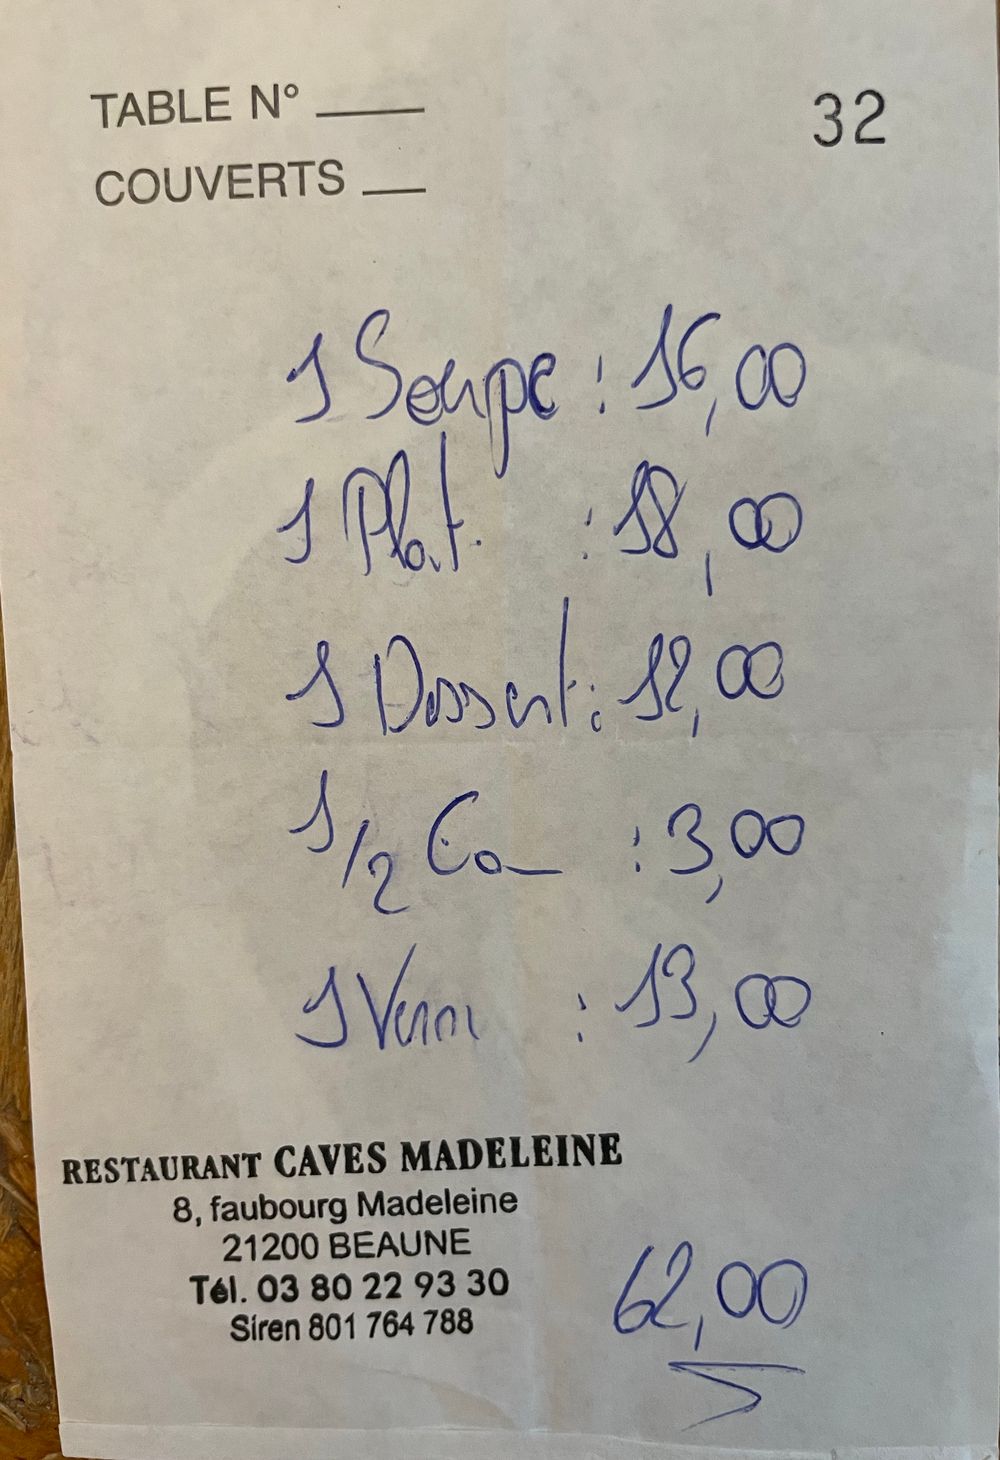 TABLE N° ____
32
COUVERTS __
1 Soupe : 16,00
1 Plat. : 18,00
1 Dessert : 12,00
1/2 Ca : 3,00
1 Verre : 13,00
RESTAURANT CAVES MADELEINE
8, faubourg Madeleine
21200 BEAUNE
Tél. 03 80 22 93 30
Siren 801 764 788
62,00